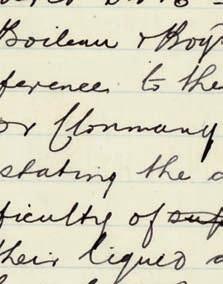 Boileau & Boy
ference to the
or Clonmany
stating the
ficulty of sup
their liqued